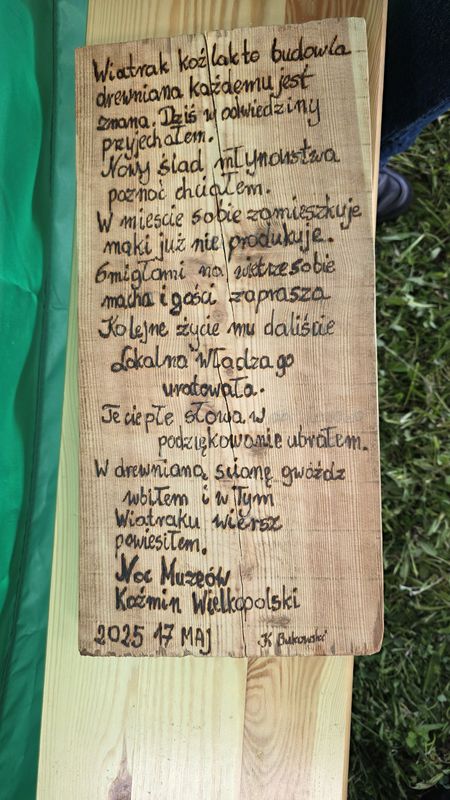 Wiatrak koźlak to budowla
drewniana każdemu jest
znana. Dziś w odwiedziny
przyjechałem.
Nowy ślad młynarstwa
poznać chciałem.
W mieście sobie zamieszkuje
mąki już nie produkuje.
Śmigłami na wietrze sobie
macha i gości zaprasza
Kolejne życie mu daliście
Lokalna Władza go
uratowała.
Te ciepłe słowa w
podziękowanie ubrałem.
W drewnianą ścianę gwóźdz
wbiłem i w tym
Wiatraku wiersz
powiesiłem.
Noc Muzeów
Koźmin Wielkopolski
2025 17 MAJ K Bukowski